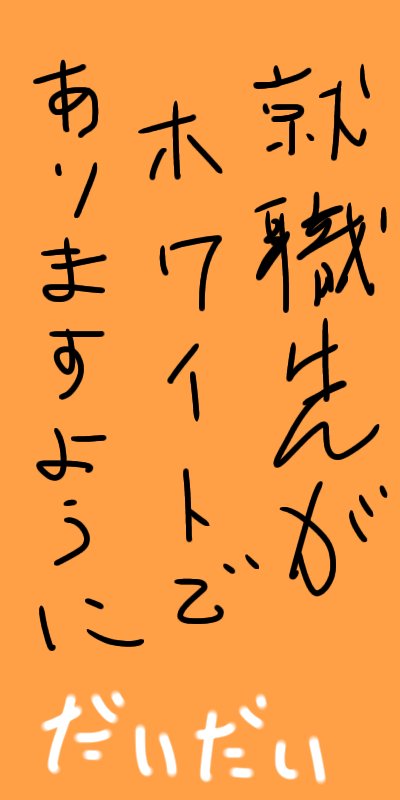 就職先が
ホワイトで
ありますように
だいだい